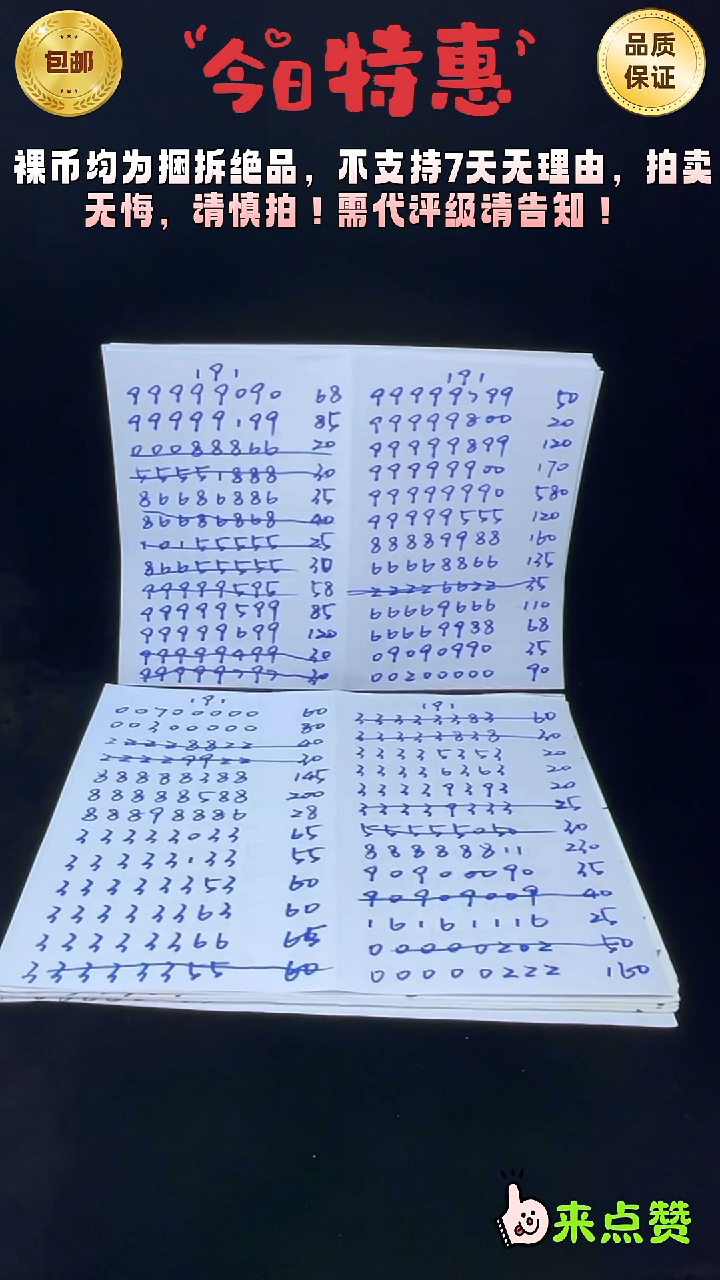 包邮
“今日特惠”
品质
保证
裸币均为捆拆绝品，不支持7天无理由，拍卖
无悔，请慎拍！需代评级请告知！
191
99999090 68
99999199 85
00088866 20
55551888 30
86686886 35
86686868 40
10155555 25
86655555 30
99999595 58
99999599 85
99999699 120
99999499 30
99999797 30
191
99999799 50
99999800 20
99999899 120
99999900 170
99999990 580
99999555 120
88889988 160
66668866 135
22226622 35
66669666 110
66669988 68
09090990 35
00200000 90
191
00700000 60
00300000 80
22228822 40
22229922 30
88888388 145
88888588 200
88898886 28
33333033 65
33333133 55
33333353 60
33333363 60
33333366 65
33333355 60
191
33333383 60
33333838 30
33335353 20
33336363 20
33339393 20
33339333 25
55555050 30
88888811 230
90900090 35
90909009 40
16161116 25
00000202 50
00000222 160
来点赞